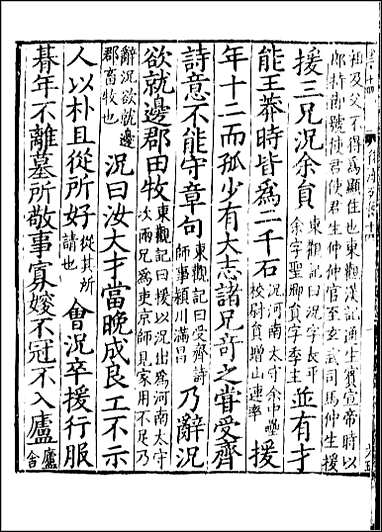 祖及父不得為顯任也東觀漢記通生賓宣帝時以
郎持節號使君使君生仲仲官至玄武司馬仲生援
援三兄況余員東觀記曰況字長平余字聖卿員字季主並有才
能王莽時皆爲二千石況河南太守余中壘校尉員增山連率援
年十二而孤少有大志諸兄奇之甞受齊
詩意不能守章句東觀記曰受齊詩師事潁川滿昌乃辭況
欲就邊郡田牧東觀記曰援以況出為河南太守次兩兄為吏京師見家用不足乃
辭況欲就邊郡畜牧也況曰汝大才當晚成良工不示
人以朴且從所好從其所請也會況卒援行服
朞年不離墓所敬事寡嫂不冠不入廬廬舍